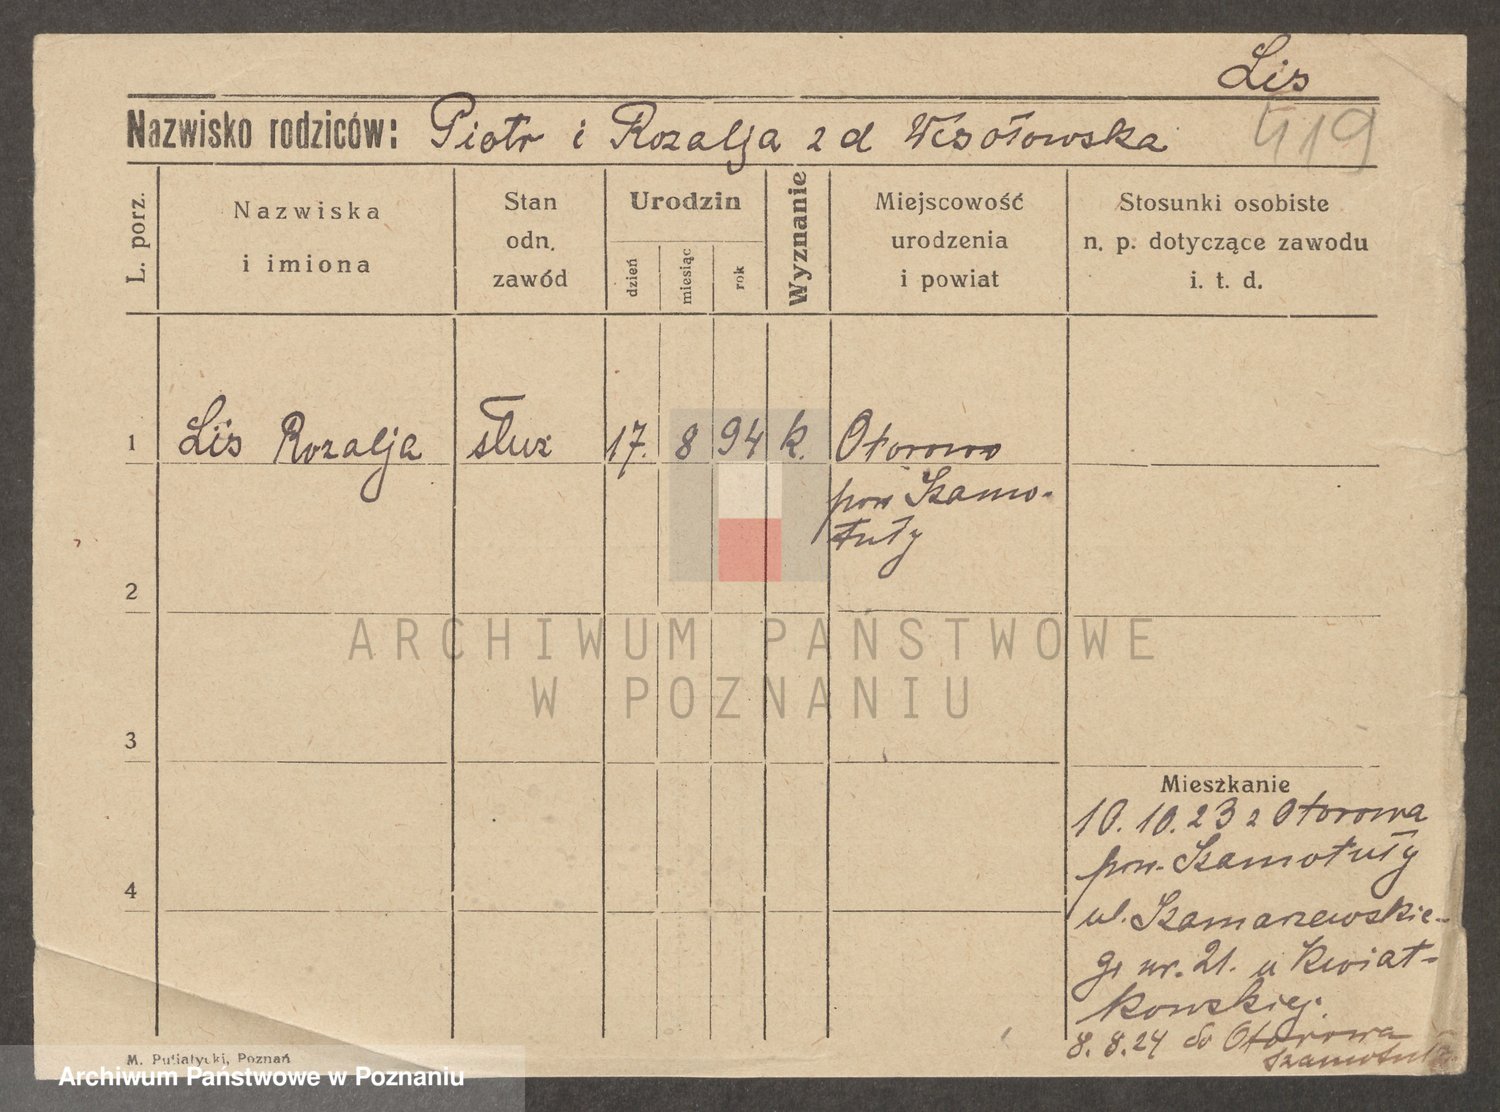 Lis
Nazwisko rodziców: Piotr i Rozalja z d Wesołowska
419
L. porz.
Nazwiska
i imiona
Stan
odn.
zawód
Urodzin
dzień
miesiąc
rok
Wyznanie
Miejscowość
urodzenia
i powiat
Stosunki osobiste
n. p. dotyczące zawodu
i. t. d.
1 Lis Rozalja służ 17. 8 94 k. Otorowo
pow Szamo-
tuły
2
ARCHIWUM PAŃSTWOWE
W POZNANIU
3
Mieszkanie
10. 10. 23 z Otorowa
pow. Szamotuły
4
ul. Szamarzewskie-
go nr. 21. u Kwiat-
kowskiej.
8. 8. 24 do Otorowa
Szamotuły
M. Putiatycki, Poznań
Archiwum Państwowe w Poznaniu